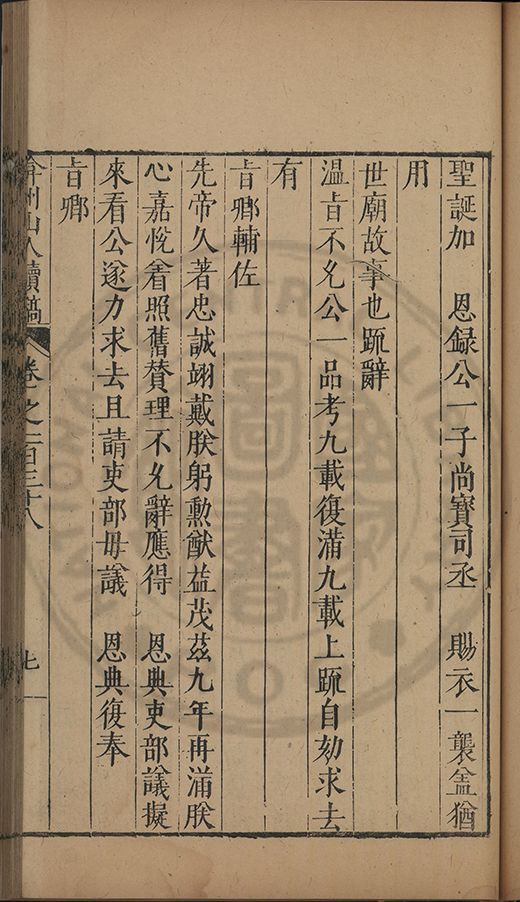 聖誕加　恩録公一子尚寶司丞　賜衣一襲盖猶
用
世廟故事也䟽辭
温㫖不允公一品考九載復滿九載上䟽自劾求去
有
㫖卿輔佐
先帝久著忠誠翊戴朕躬勲猷益茂茲九年再滿朕
心嘉悅着照舊賛理不允辭應得　恩典吏部議擬
來看公遂力求去且請吏部毋議　恩典復奉
㫖卿
弇州山人續稿　卷之一百三十八　七